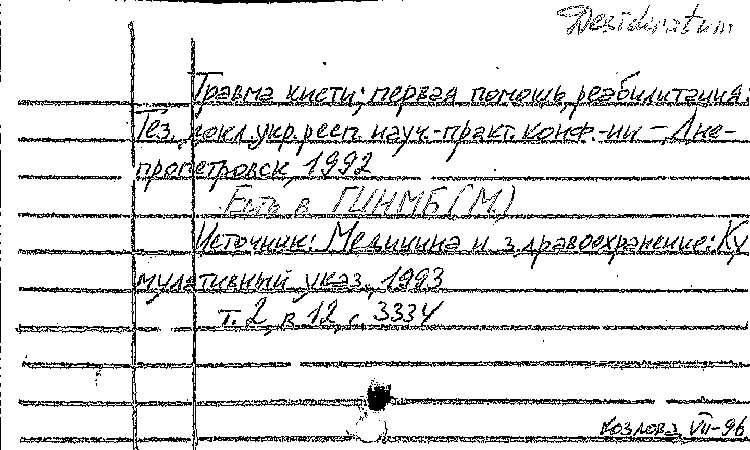 Desideratum
Травма кисти; первая помощь, реабилитация:
Тез. докл. укр. респ. науч.-практ. конф.-ии – Дне-
пропетровск, 1992
Есть в ГЦНМБ (М)
Источник: Медицина и здравоохранение: Ку
мулятивный указ., 1993
т. 2, в. 12, с. 3334
Козлова VII-96